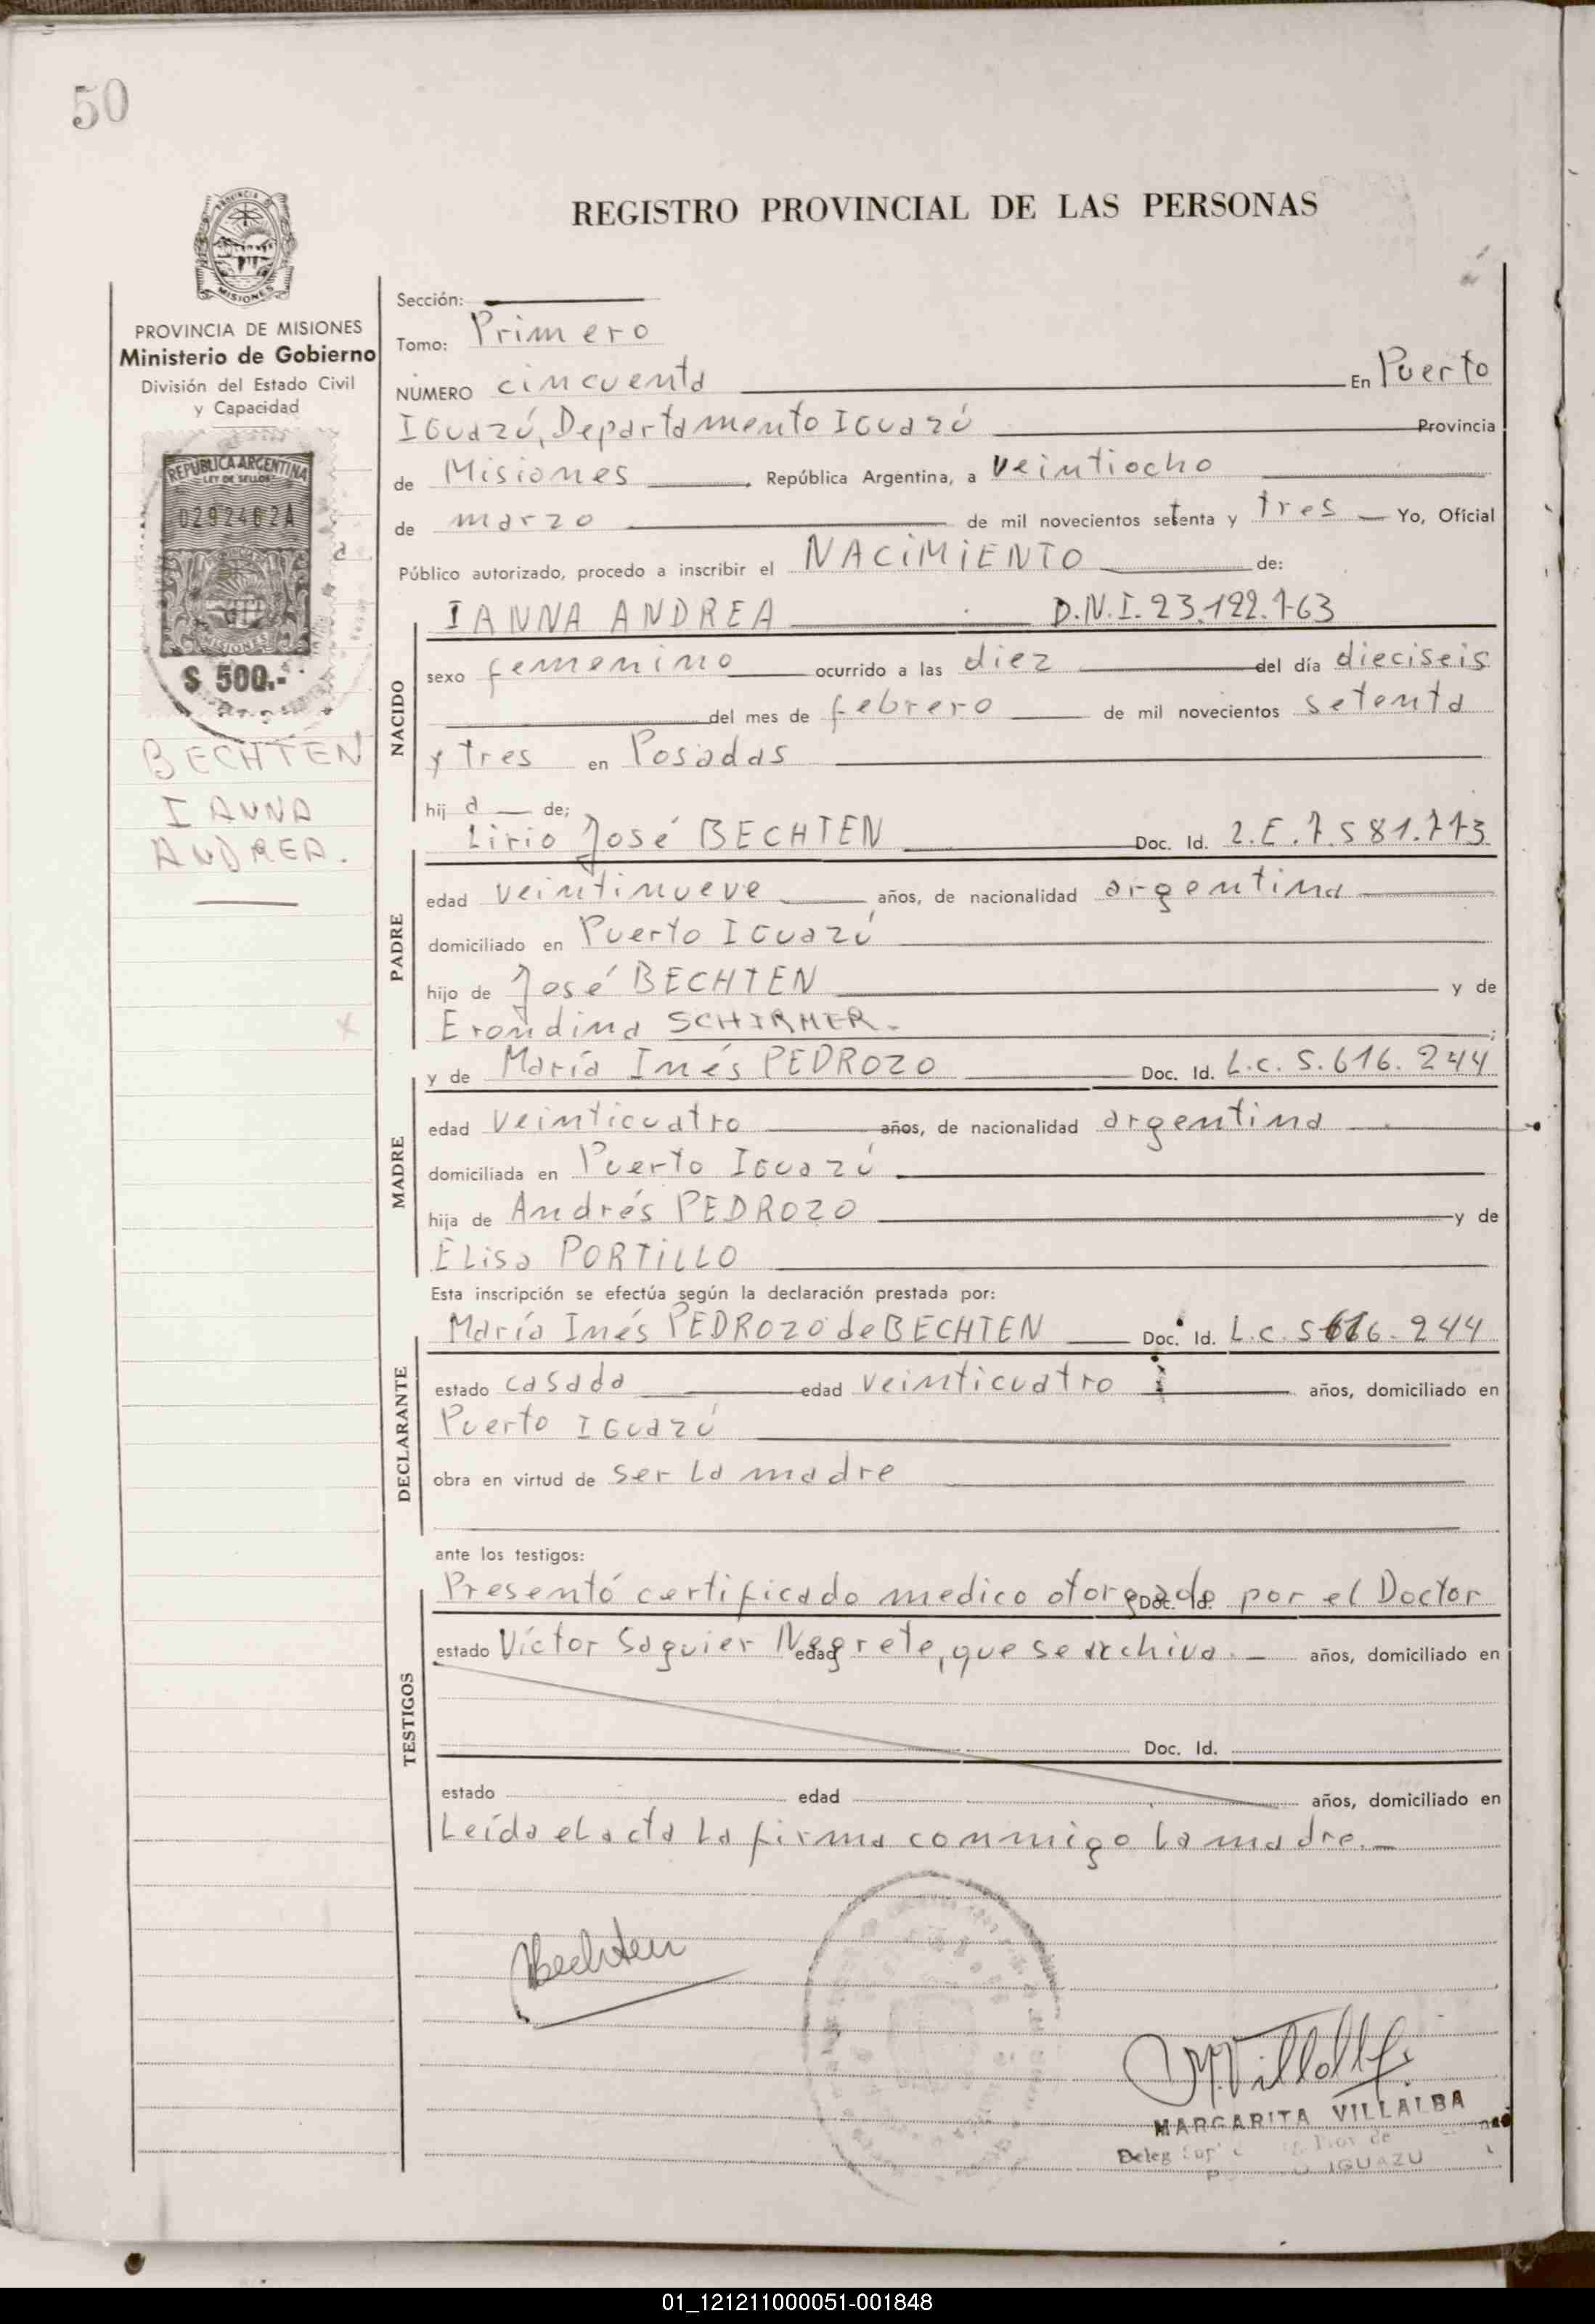 50
REGISTRO PROVINCIAL DE LAS PERSONAS
PROVINCIA DE MISIONES
Ministerio de Gobierno
División del Estado Civil
y Capacidad
REPUBLICA ARGENTINA
LEY DE SELLOS
0292462A
MISIONES
$ 500.-
BECHTEN
IANNA
ANDREA.
Sección:
Tomo: Primero
NÚMERO cincuenta En Puerto
Iguazú, Departamento Iguazú Provincia
de Misiones, República Argentina, a veintiocho
de marzo de mil novecientos setenta y tres Yo, Oficial
Público autorizado, procedo a inscribir el NACIMIENTO de:
IANNA ANDREA D.N.I. 23.122.763
NACIDO
sexo femenino ocurrido a las diez del día dieciseis
del mes de febrero de mil novecientos setenta
y tres en Posadas
hija de;
Lirio José BECHTEN Doc. Id. L.E. 7.581.773
PADRE
edad veintinueve años, de nacionalidad argentina
domiciliado en Puerto Iguazú
hijo de José BECHTEN y de
Erondina SCHIRMER.
y de María Inés PEDROZO Doc. Id. L.C. 5.616.244
MADRE
edad veinticuatro años, de nacionalidad argentina
domiciliada en Puerto Iguazú
hija de Andrés PEDROZO y de
Elisa PORTILLO
Esta inscripción se efectúa según la declaración prestada por:
María Inés PEDROZO de BECHTEN Doc. Id. L.C. 5616.244
DECLARANTE
estado casada edad veinticuatro años, domiciliado en
Puerto Iguazú
obra en virtud de ser la madre
ante los testigos:
Presentó certificado medico otorgado por el Doctor
estado Víctor Saguier Negrete, que se archiva. edad años, domiciliado en
TESTIGOS
Doc. Id.
estado edad años, domiciliado en
Leída el acta la firma conmigo la madre.
Bechten
MVillalba
MARGARITA VILLALBA
IGUAZU
01_121211000051-001848